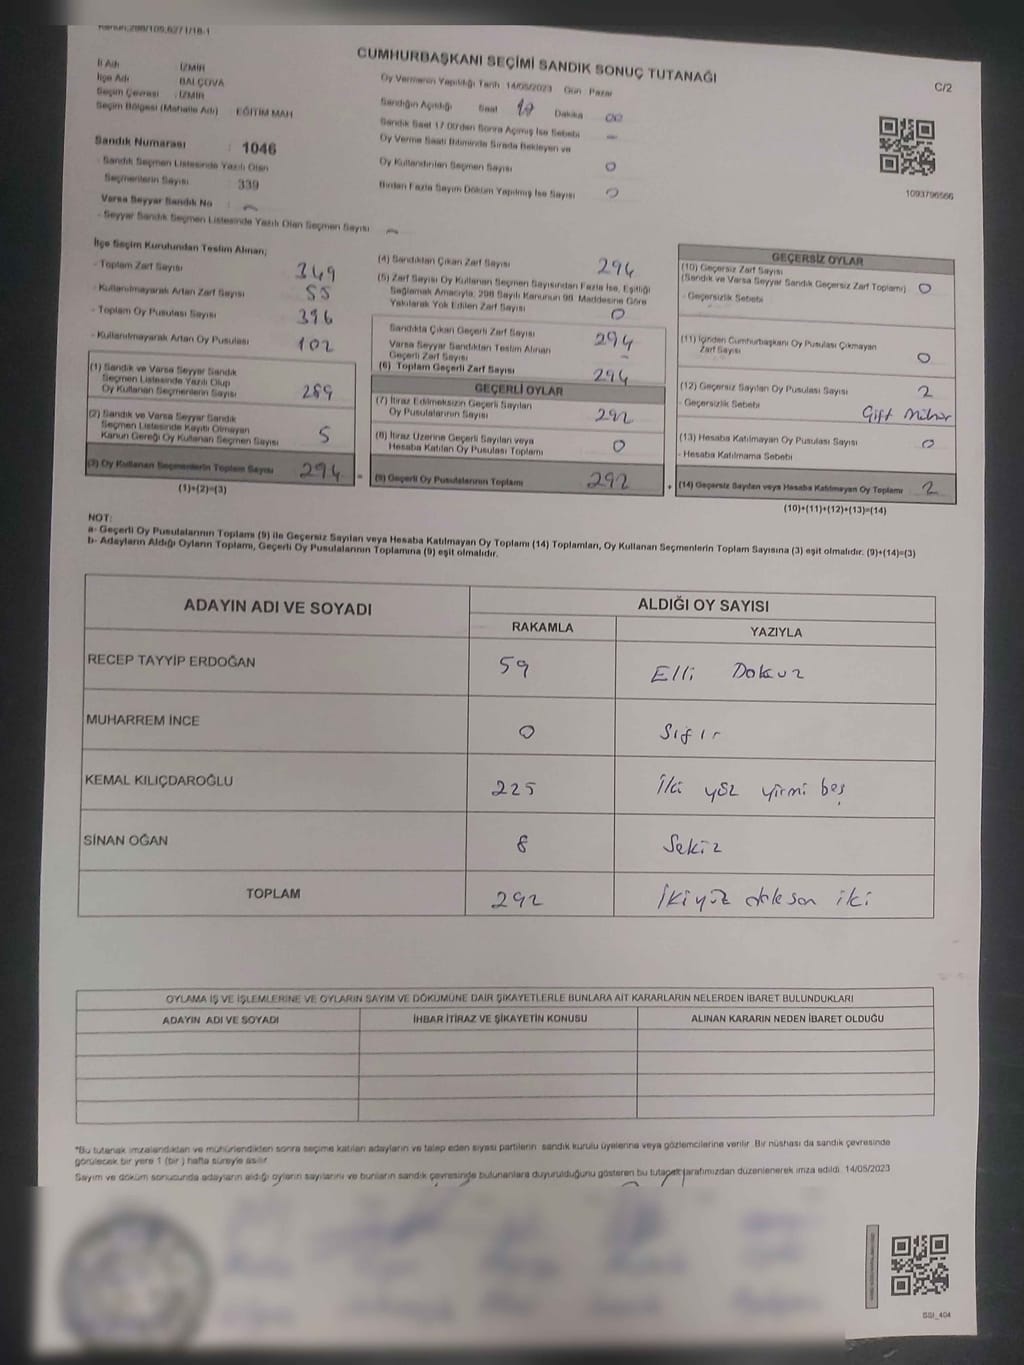 Kanun:298/105,6271/18-1
CUMHURBAŞKANI SEÇİMİ SANDIK SONUÇ TUTANAĞI
C/2
İl Adı : İZMİR
İlçe Adı : BALÇOVA
Seçim Çevresi : İZMİR
Seçim Bölgesi (Mahalle Adı) : EĞİTİM MAH
Oy Vermenin Yapıldığı Tarih 14/05/2023 Gün Pazar
Sandığın Açıldığı Saat 17 Dakika 00
Sandık Saat 17:00'den Sonra Açılmış İse Sebebi –
Oy Verme Saati Bitiminde Sırada Bekleyen ve
Oy Kullandırılan Seçmen Sayısı 0
Birden Fazla Sayım Döküm Yapılmış İse Sayısı 0
1093796566
Sandık Numarası : 1046
- Sandık Seçmen Listesinde Yazılı Olan
Seçmenlerin Sayısı : 339
Varsa Seyyar Sandık No : –
- Seyyar Sandık Seçmen Listesinde Yazılı Olan Seçmen Sayısı –
İlçe Seçim Kurulundan Teslim Alınan;
- Toplam Zarf Sayısı 349
- Kullanılmayarak Artan Zarf Sayısı 55
- Toplam Oy Pusulası Sayısı 396
- Kullanılmayarak Artan Oy Pusulası 102
(1) Sandık ve Varsa Seyyar Sandık
Seçmen Listesinde Yazılı Olup
Oy Kullanan Seçmenlerin Sayısı 289
(2) Sandık ve Varsa Seyyar Sandık
Seçmen Listesinde Kayıtlı Olmayan
Kanun Gereği Oy Kullanan Seçmen Sayısı 5
(3) Oy Kullanan Seçmenlerin Toplam Sayısı 294
(1)+(2)=(3)
(4) Sandıktan Çıkan Zarf Sayısı 294
(5) Zarf Sayısı Oy Kullanan Seçmen Sayısından Fazla İse, Eşitliği
Sağlamak Amacıyla, 298 Sayılı Kanunun 98. Maddesine Göre
Yakılarak Yok Edilen Zarf Sayısı 0
Sandıkta Çıkan Geçerli Zarf Sayısı 294
Varsa Seyyar Sandıktan Teslim Alınan
Geçerli Zarf Sayısı –
(6) Toplam Geçerli Zarf Sayısı 294
GEÇERLİ OYLAR
(7) İtiraz Edilmeksizin Geçerli Sayılan
Oy Pusulalarının Sayısı 292
(8) İtiraz Üzerine Geçerli Sayılan veya
Hesaba Katılan Oy Pusulası Toplamı 0
= (9) Geçerli Oy Pusulalarının Toplamı 292
GEÇERSİZ OYLAR
(10) Geçersiz Zarf Sayısı
(Sandık ve Varsa Seyyar Sandık Geçersiz Zarf Toplamı) 0
- Geçersizlik Sebebi
(11) İçinden Cumhurbaşkanı Oy Pusulası Çıkmayan
Zarf Sayısı 0
(12) Geçersiz Sayılan Oy Pusulası Sayısı 2
- Geçersizlik Sebebi Çift Mühür
(13) Hesaba Katılmayan Oy Pusulası Sayısı 0
- Hesaba Katılmama Sebebi
+ (14) Geçersiz Sayılan veya Hesaba Katılmayan Oy Toplamı 2
(10)+(11)+(12)+(13)=(14)
NOT:
a- Geçerli Oy Pusulalarının Toplamı (9) ile Geçersiz Sayılan veya Hesaba Katılmayan Oy Toplamı (14) Toplamları, Oy Kullanan Seçmenlerin Toplam Sayısına (3) eşit olmalıdır. (9)+(14)=(3)
b- Adayların Aldığı Oyların Toplamı, Geçerli Oy Pusulalarının Toplamına (9) eşit olmalıdır.
ADAYIN ADI VE SOYADI ALDIĞI OY SAYISI
RAKAMLA YAZIYLA
RECEP TAYYİP ERDOĞAN 59 Elli Dokuz
MUHARREM İNCE 0 Sıfır
KEMAL KILIÇDAROĞLU 225 İki yüz yirmi beş
SİNAN OĞAN 8 Sekiz
TOPLAM 292 İkiyüz doksan iki
OYLAMA İŞ VE İŞLEMLERİNE VE OYLARIN SAYIM VE DÖKÜMÜNE DAİR ŞİKAYETLERLE BUNLARA AİT KARARLARIN NELERDEN İBARET BULUNDUKLARI
ADAYIN ADI VE SOYADI İHBAR İTİRAZ VE ŞİKAYETİN KONUSU ALINAN KARARIN NEDEN İBARET OLDUĞU
*Bu tutanak imzalandıktan ve mühürlendikten sonra seçime katılan adayların ve talep eden siyasi partilerin sandık kurulu üyelerine veya gözlemcilerine verilir. Bir nüshası da sandık çevresinde
görülecek bir yere 1 (bir) hafta süreyle asılır.
Sayım ve döküm sonucunda adayların aldığı oyların sayılarını ve bunların sandık çevresinde bulunanlara duyurulduğunu gösteren bu tutanak tarafımızdan düzenlenerek imza edildi. 14/05/2023
SSI_404